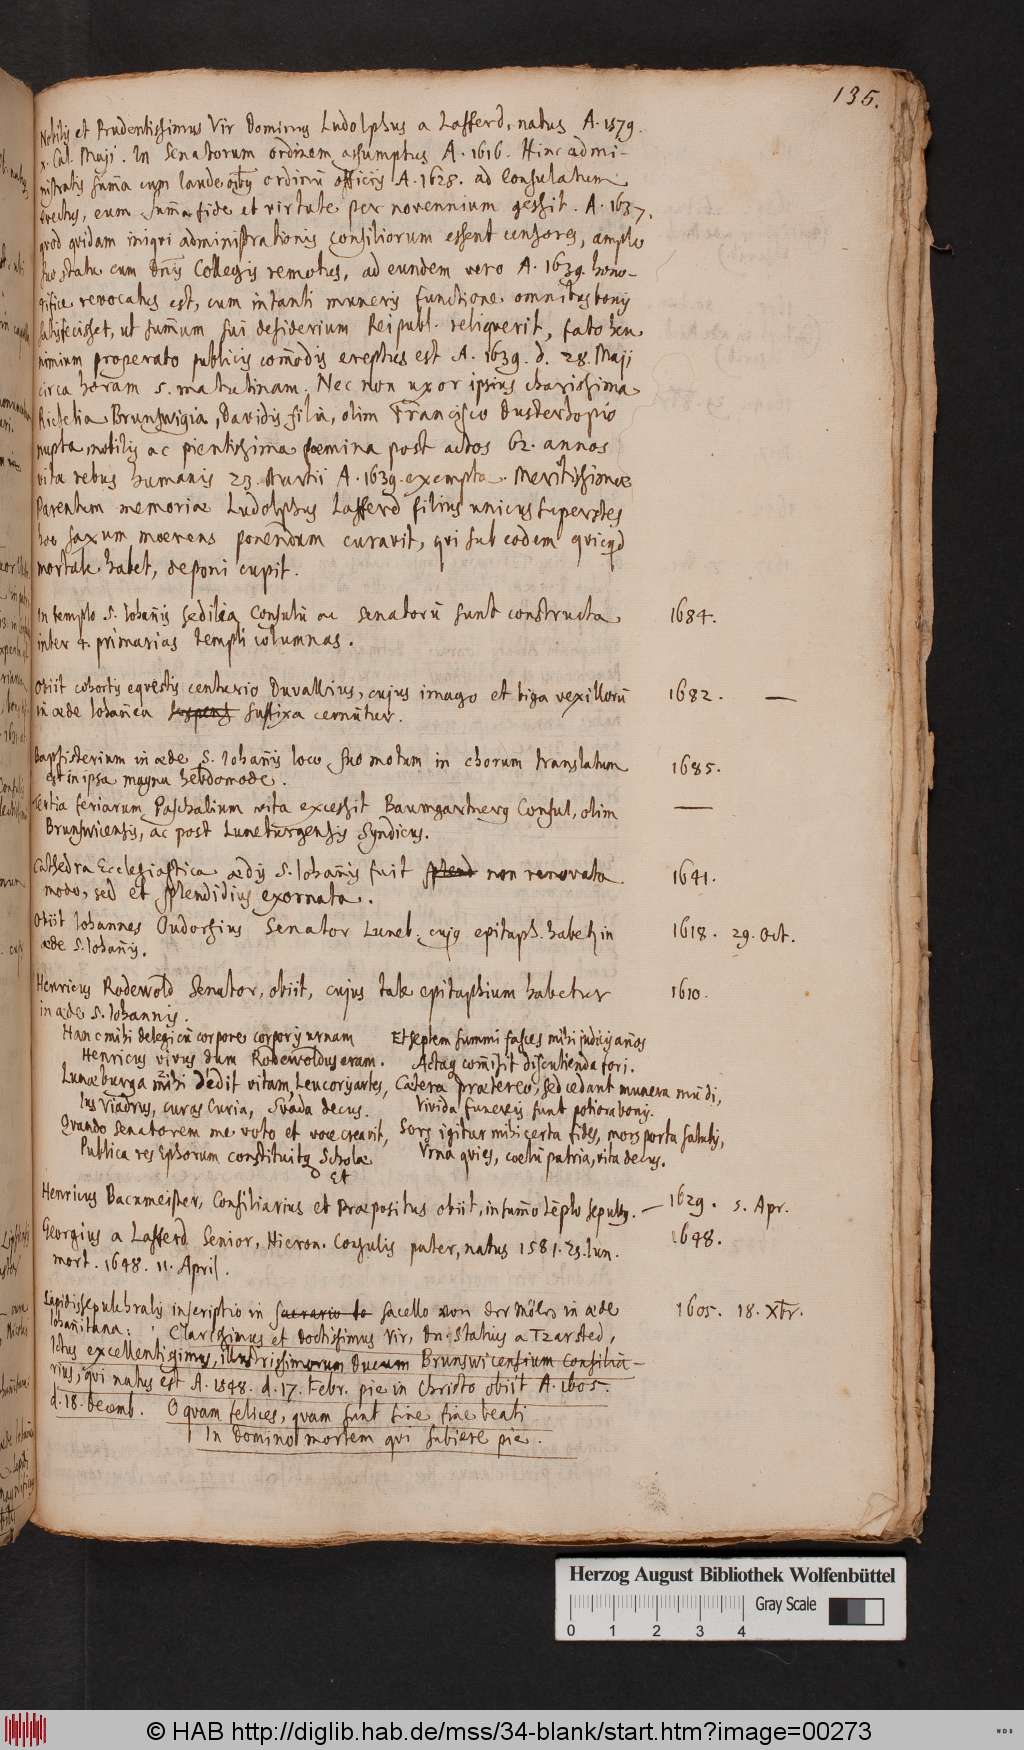 135.
Nobilis et Prudentissimus Vir Dominus Ludolphus a Lafferd, natus A. 1579.
x. Cal. Maji. In Senatorum ordinem assumptus A. 1616. Hinc admi-
nistratis sum̄a cum laude oīby ordinū officijs A. 1628. ad Consulatum
evectus, eum sum̄a fide et virtute per novennium gessit. A. 1637.
qvod qvidam iniqvi administrationis consiliorum essent censores, amplo
suo statu cum Collegis remotus, ad eundem vero A. 1639. hono-
rifice revocatus est, cum in tanti muneris functione omnibus bonis
satisfecisset, ut sum̄um sui desiderium Reipubl. reliqverit, fato heu
nimium properato publicis com̄odis ereptus est A. 1639. d. 28. Maji
circa horam 5. matutinam. Nec non uxor ipsius charissima
Brunswigia, Davidis filia, olim Francisco Dusterhopio
nupta, nobilis ac pientissima foemina post actos 62. annos
vita rebus humanis 23. Martii A. 1639. exempta. Meritissimae
Parentum memoriae Ludolphus Lafferd filius unicus superstes
hoc saxum moerens ponendum curavit, qvi sub eodem qvicqd
mortale habet, deponi cupit.
In templo S. Iohan̄is sedilia Consulū ac senatorū sunt constructa 1684.
inter 4. primarias templi columnas.
Obiit cohortis eqvestris centurio Duvallius, cujus imago et biga vexillorū 1682. —
in aede Iohan̄ea suspens suffixa cernūtur.
Baptisterium in aede S. Iohan̄is loco suo motum in chorum translatum 1685.
est in ipsa magna hebdomade.
Tertia feriarum Paschalium vita excessit Baumgartnerg Consul, olim —
Brunswicensis, ac post Luneburgensis Syndicus.
Cathedra Ecclesiastica aedis S. Iohan̄is fuit splend non renovata 1641.
modo, sed et splendidius exornata.
Obiit Iohannes Dudorsius Senator Luneb. cujg epitaph. habetr in 1618. 29. Oct.
aede S. Iohan̄is.
Henricus Rodewold Senator, obiit, cujus tale epitaphium habetur 1610.
in aede S. Iohannis.
Hanc mihi delegi cū corpore corporis urnam
Henricus vivus dum Rodewoldus eram.
Lunaeburga mihi dedit vitam, Leucoris artes,
Ius Viadrus, curas Curia, Svada decus.
Qvando Senatorem me voto et voce creavit,
Publica res Ephorum constituitq Scholae
Et
Et septem summi fasces mihi judicij an̄os
Actaq com̄isit discutienda fori.
Caetera praetereo, sed cedant munera mūdi,
Vivida funereis sunt potiora bonis.
Sors igitur mihi certa fides, mors porta salutis,
Vrna qvies, coelū patria, vita decus.
Henricus Bacmeister, Consiliarius et Praepositus obiit, in sum̄o tēplo sepultg. — 1629. 5. Apr.
Georgius a Lafferd Senior, Hieron. Consulis pater, natus 1581. 23. Iun. 1648.
mort. 1648. 11. April.
Lapidis sepulchralis inscriptio in sacrario de sacello von der Mölen in aede 1605. 18. Xbr.
Iohan̄itana: Clarissimus et Doctissimus Vir, Dn. Statius a Tzarsted,
Ictus excellentissimus, illustrissimorum Ducum Brunswicensium Consilia-
rius, qvi natus est A. 1548. d. 17. Febr. pie in Christo obiit A. 1605.
d. 18. Decemb. O quam felices, quam sunt sine fine beati
In Domino mortem qvi subiere pie.
Herzog August Bibliothek Wolfenbüttel
Gray Scale
0 1 2 3 4
© HAB http://diglib.hab.de/mss/34-blank/start.htm?image=00273